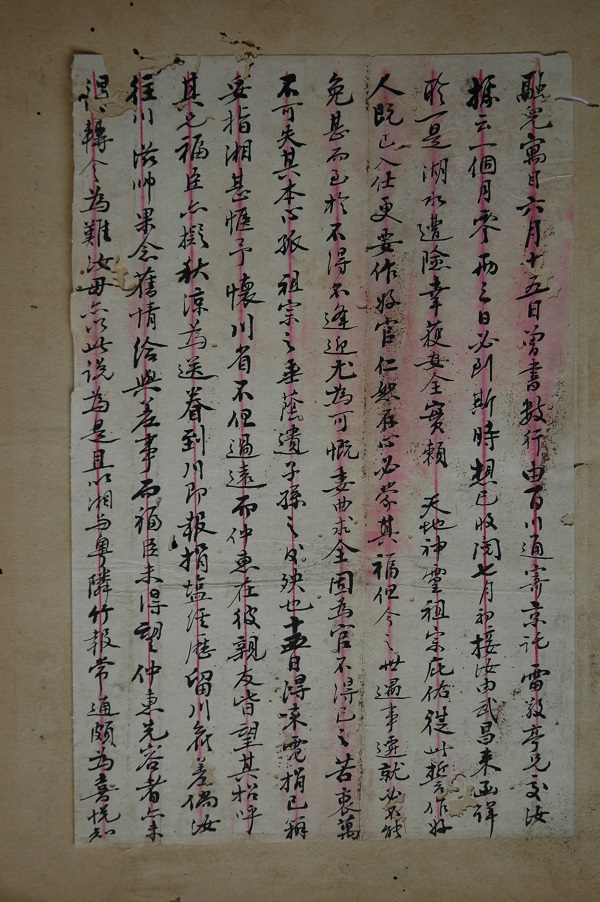 融兒寓目六月十五日曾書數行由百川通寄京託雷毅亭兄交汝
據云一個月零兩三日必到斯時想已收閱七月初接汝由武昌來函詳
於一是湖水遭險幸獲安全實賴天地神靈祖宗庇佑從此誓作好
人既已入仕更要作好官仁然存心必蒙其福但今之世遇事遷就必不能
免甚而至於不得不逢迎尤為可慨委曲求全固為官不得已之苦衷萬
不可失其本心孤祖宗之垂蔭遺子孫之後殃也十五日得來電捐已辦
妥指湘甚愜予懷川省不但過遠而仲東在彼親友皆望其招呼
其兄福臣亦擬秋涼為送眷到川即報捐塩經歷留川當差倘汝
往川滋帥果念舊情給與差事而福臣未得望仲東先容者亦未
得轉令為難汝母亦以此說為是且以湘与粵隣竹報常通頗為喜悅知